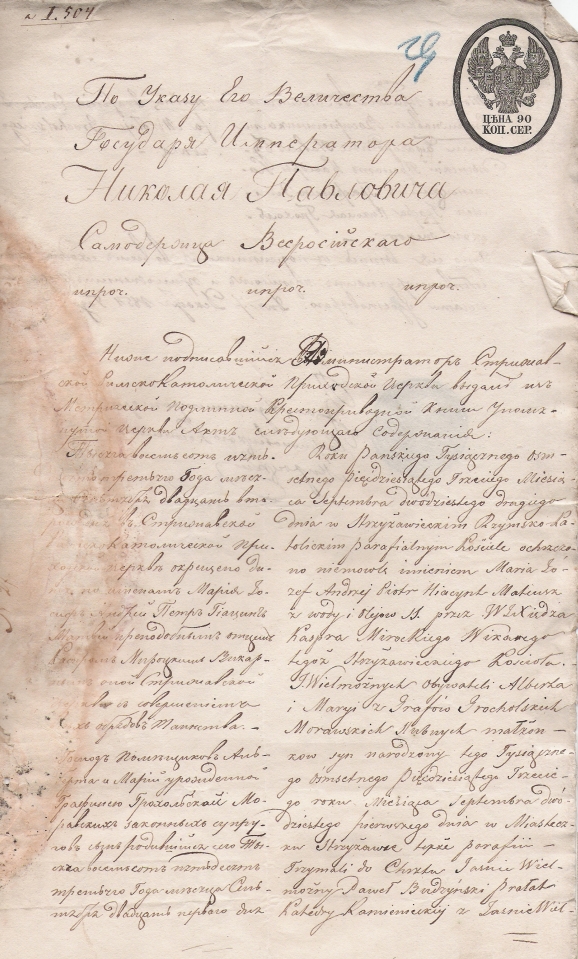 I. 504
ЦѢНА 90
КОП. СЕР.
По Указу Его Величества
Государя Императора
Николая Павловича
Самодержца Всеросiйскаго
ипроч. ипроч. ипроч.
Ниже подписавшiйся Администраторъ Стрижав-
ской Римско Католической Приходской Церкви выдалъ изъ
Метрической подлинной Крестоприводной Книги Упомя-
нутой Церкви Актъ слѣдующаго Содержанiя:
Тысяча восемьсотъ пять-
третьяго Года мѣся-
двадцать вто-
дня въ Стрижавской
Католической При-
церкви окрещено ди-
по именамъ Марiя Iо-
сифъ Андрей Петръ Гiацинтъ
преподобнымъ отцемъ
Каспромъ Мироцкимъ Викар-
оной Стрижавской
церкви съ совершенiемъ
обрядовъ Таинства.
Господъ Помѣщиковъ Аль-
берта и Марiи урожденной
Графинею Грохольской Мо-
равскихъ законныхъ супру-
говъ сынъ родившiйся сего Ты-
сяча восемьсотъ пятьдесятъ
третьяго Года мѣсяца Сен-
тября двадцать перваго дня
Roku Pańskiego Tysiącznego osm-
setnego Pięćdziesiątego Trzeciego Miesią-
ca Septembra dwudziestego drugiego
dnia w Strzyżawieckim Rzymsko Ka-
tolickim parafialnym Kościele ochrzczo-
no niemowle imieniem Maria Jó-
zef Andrzej Piotr Hiacynt Mateusz
z wody i olejow SS. przez WJXiędza
Kaspra Mirockiego Wikarego
tegoż Strzyżawieckiego Kościoła.
JWielmożnych Obywateli Alberta
i Maryi z Grafów Grocholskich
Morawskich ślubnych małżon-
ków syn narodzony tego Tysiączne-
go osmsetnego Pięćdziesiątego Trzecie-
go roku Miesiąca Septembra dwó-
dziestego pierwszego dnia w Miastecz-
ku Strzyżawce tejże parafii
Trzymali do Chrztu Jaśnie Wiel-
możny Paweł Budzyński Prałat
Katedry Kamienieckiej z Jaśnie Wiel-